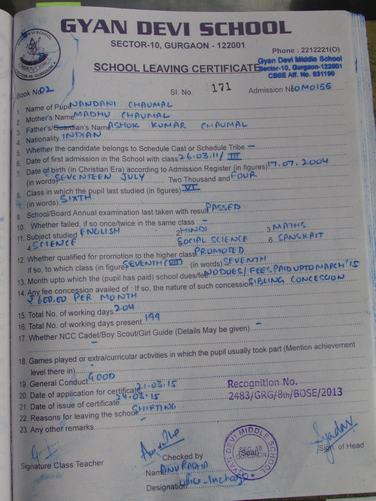 GYAN DEVI SCHOOL
SECTOR-10, GURGAON - 122001
Phone : 2212221(O)
SCHOOL LEAVING CERTIFICATE
Gyan Devi Middle School
Sector-10, Gurgaon-122001
CBSE Aff. No. 531190
Book No 02 Sl. No. 171 Admission No 60M0156
1. Name of Pupil NANDANI CHAUMAL
2. Mother's Name MADHU CHAUMAL
3. Father's/Guardian's Name ASHOK KUMAR CHAUMAL
4. Nationality INDIAN
5. Whether the candidate belongs to Schedule Cast or Schedule Tribe –
6. Date of first admission in the School with class 26.03.11/ III
7. Date of birth (in Christian Era) according to Admission Register (in figures) 17.07.2004
(in words) SEVENTEEN JULY Two Thousand and FOUR
8. Class in which the pupil last studied (in figures) VI
(in words) SIXTH
9. School/Board Annual examination last taken with result PASSED
10. Whether failed, if so once/twice in the same class –
11. Subject studied 1 ENGLISH 2 HINDI 3 MATHS
4 SCIENCE 5 SOCIAL SCIENCE 6 SANSKRIT
12. Whether qualified for promotion to the higher class PROMOTED
If so, to which class (in figures) SEVENTH (VII) (in words) SEVENTH
13. Month upto which the (pupil has paid) school dues/fee NO DUES/ FEES PAID UPTO MARCH'15
14. Any fee concession availed of : If so, the nature of such concession SIBLING CONCESSION
₹ 600.00 PER MONTH
15. Total No. of working days 204
16. Total No. of working days present 199
17. Whether NCC Cadet/Boy Scout/Girl Guide (Details May be given) –
18. Games played or extra/curricular activities in which the pupil usually took part (Mention achievement
level there in) –
19. General Conduct GOOD
20. Date of application for certificate 21.03.15
21. Date of issue of certificate 24.03.15
22. Reasons for leaving the school SHIFTING
23. Any other remarks
Recognition No.
2483/GRG/8th/BOSE/2013
Signature Class Teacher
Checked by
Name ANURADHA
Designation
(Seal)
Sign. of Head